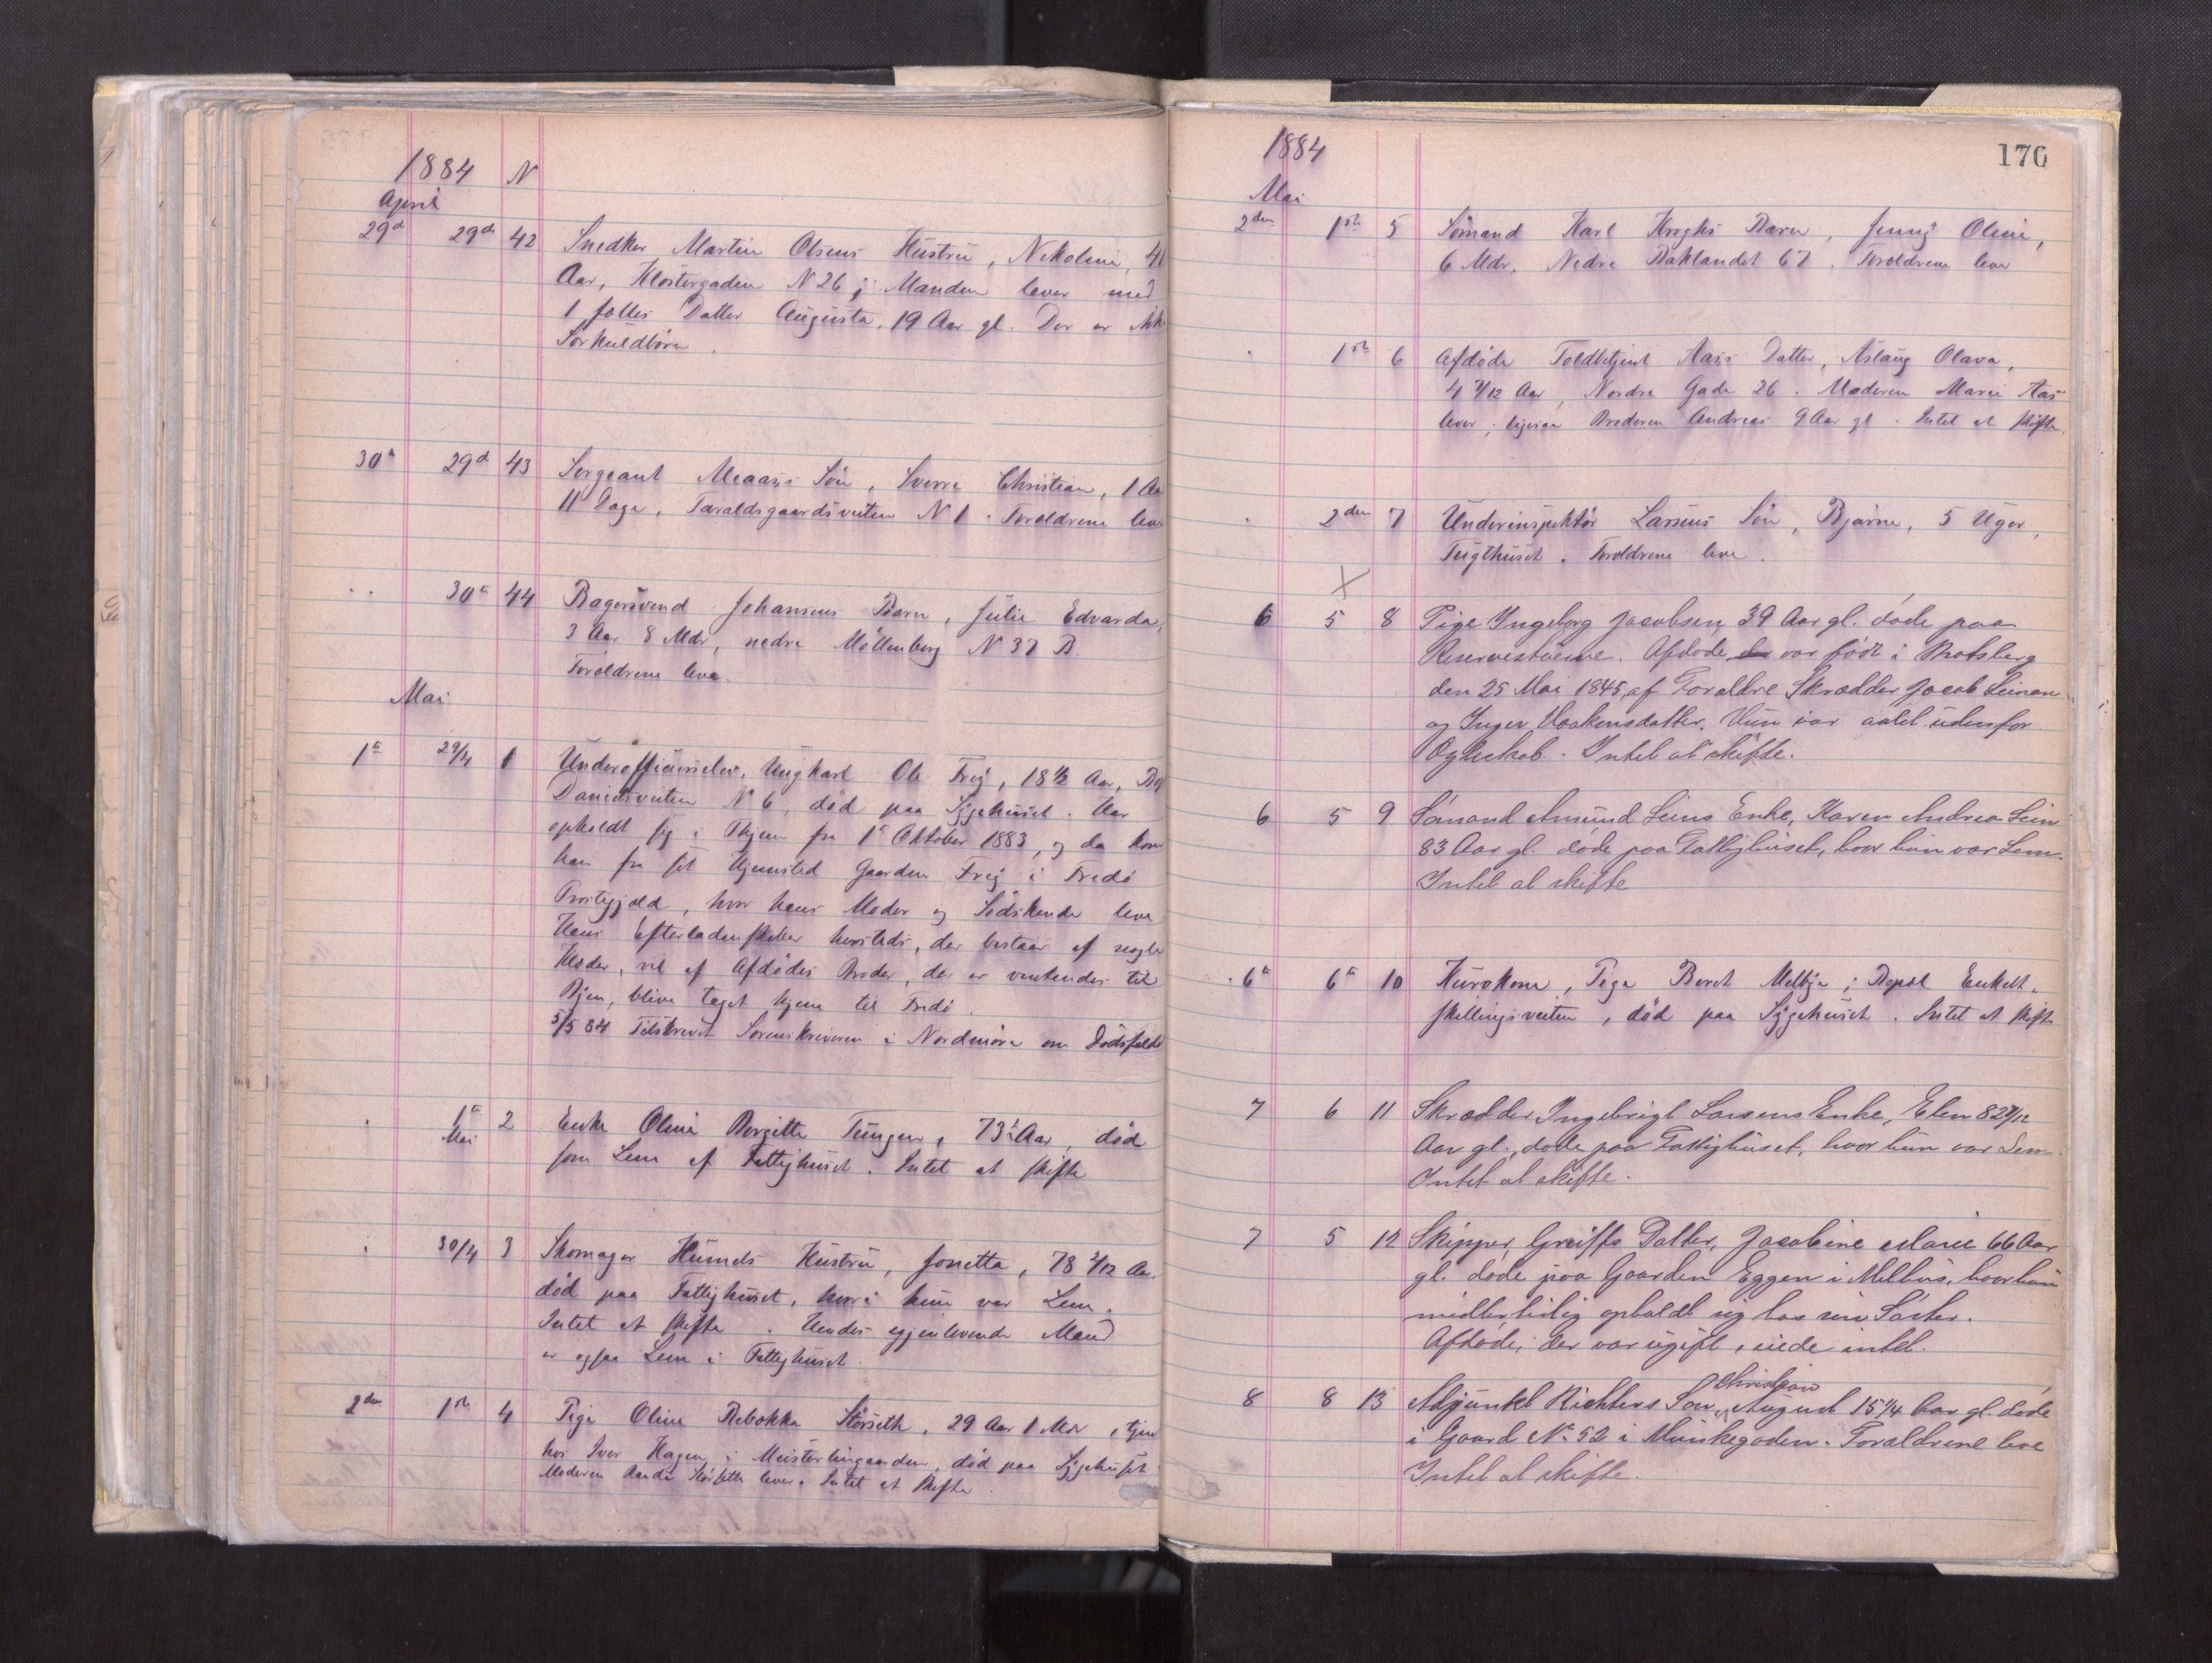 1884 N
April
29d 29d 42 Snedker Martin Olsens Hustru, Nikoline, 41
Aar, Klostergaden N 26; Manden lever med
1 fælles Datter Augusta, 19 Aar gl. Der er ikke
Særkuldbörn.
30e 29d 43 Sergeant Meaass Sön, Sverre Christian, 1 Aar
11 Dage, Taraldsgaardsveiten N 1. Forældrene leve
" 30e 44 Bagersvend Johansens Barn, Julie Edvarda,
3 Aar 8 Mdr, nedre Möllenberg N 37 B.
Forældrene leve.
Mai
1e 29/4 1 Underofficierselev, Ungkarl Ole Frej, 18 1/2 Aar,
Danielsveiten N 6, död paa Sygehuset. Har
opholdt sig i Thjem fra 1e Oktober 1883, og da kom
han fra sit Hjemsted Gaarden Frej i Fredö
Præstegjæld, hvor hans Moder og Södskende leve
Hans Efterladenskaber hersteds, der bestaar af nogle
Klæder, vil af Afdödes Broder, der er ventendes til
Byen, blive taget hjem til Fredö.
5/5 84 Tilskrevet Sorenskriveren i Nordmöre om Dödsfaldet
" 1e Mai 2 Enke Oline Bergitte Tungen, 73 1/2 Aar, död
som Lem af Fattighuset. Intet at skifte
" 30/4 3 Skomager Humels Hustru, Jonetta, 78 2/12 Aar.
död paa Fattighuset, hvori hun var Lem.
Intet at skifte. Hendes gjenlevende Mand
er ogsaa Lem i Fattighuset.
2den 1ste 4 Pige Oline Rebekka Störseth, 29 Aar 1 Mdr, tjen
hos Iver Hagen i Meisterlingaarden, död paa Sygehuset
Moderen Störseth lever. Intet at skifte.
1884
170
Mai
2den 1ste 5 Sömand Karl Kroghs Barn, Jenny Oline,
6 Mdr. Nedre Baklandet 67. Forældrene leve
" 1ste 6 Afdöde Toldbetjent Aass Datter, Aslaug Olava,
4 7/12 Aar, Nordre Gade 26. Moderen Marie Aas
lever; ligesaa Broderen Andreas 9 Aar gl. Intet at skifte.
" 2den 7 Underinspektör Larsens Sön, Bjarne, 5 Uger,
Tugthuset. Forældrene leve.
X
6 5 8 Pige Ingeborg Jacobsen, 39 Aar gl. döde paa
Reservestuerne. Afdöde var född i Bratsberg
den 25 Mai 1845, af Forældre Skrædder Jacob Leinan
og Inger Haakensdatter. Hun var avlet udenfor
Ægteskab. Intet at skifte.
6 5 9 Sömand Amund Leins Enke, Karen Andrea Lein
83 Aar gl. döde paa Fattighuset, hvor hun var Lem.
Intet at skifte
6e 6e 10 Kurvkone, Pige Beret Melbye; Bopæl Enkelt-
skillingsveiten, död paa Sygehuset. Intet at skifte
7 6 11 Skrædder Ingebrigt Larsens Enke, Elen 82 9/12
Aar gl., döde paa Fattighuset, hvor hun var Lem.
Intet at skifte.
7 5 12 Skipper Greiffs Datter, Jacobine Marie 66 Aar
gl. döde paa Gaarden Eggen i Melhus, hvor hun
midlertidig opholdt sig hos sin Söster.
Afdöde, der var ugift, eiede intet.
Christian
8 8 13 Adjunkt Richters Sön, August 15 1/4 Aar gl. döde
i Gaard No 52 i Munkegaden. Forældrene leve
Intet at skifte.